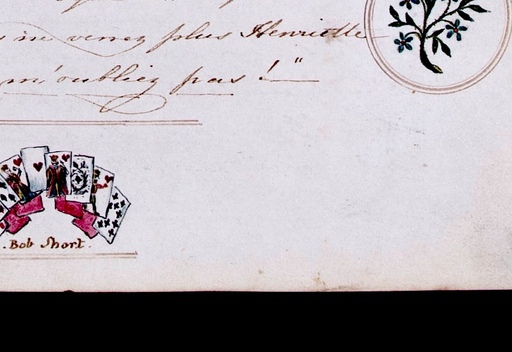 in venez plus Henriette
m'oubliez pas !"
. Bob Short.